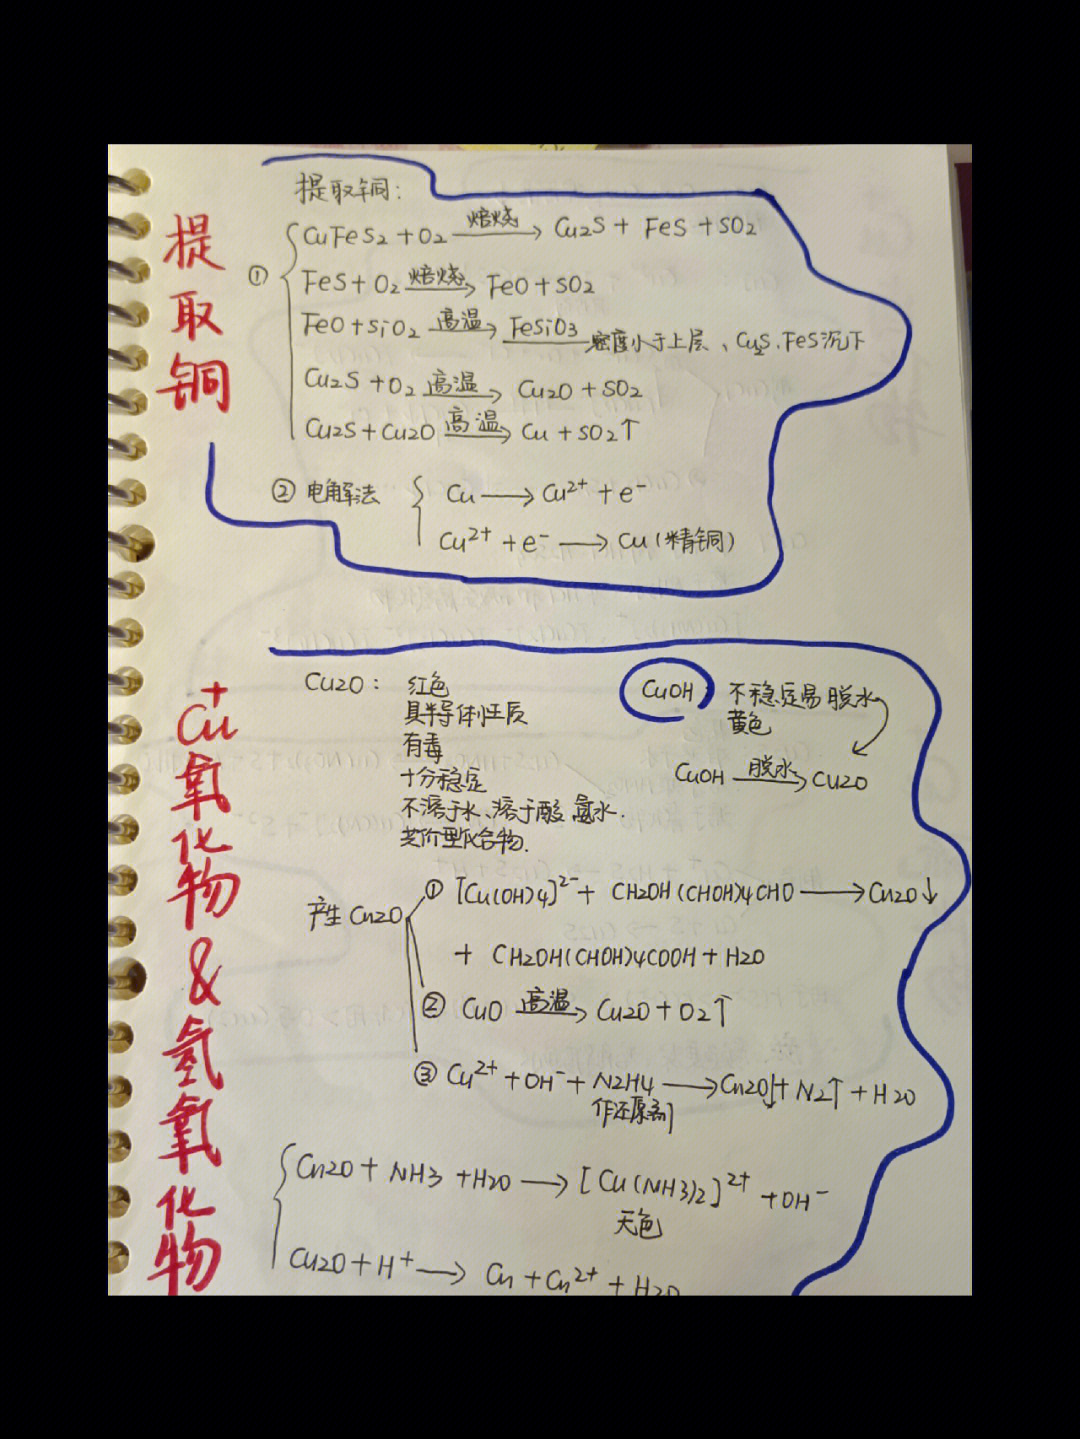 提取铜
提取铜：
① CuFeS2 + O2 —焙烧→ Cu2S + FeS + SO2
FeS + O2 —焙烧→ FeO + SO2
FeO + SiO2 —高温→ FeSiO3 密度小于上层、Cu2S、FeS沉下
Cu2S + O2 —高温→ Cu2O + SO2
Cu2S + Cu2O —高温→ Cu + SO2↑
② 电解法 Cu → Cu²⁺ + e⁻
Cu²⁺ + e⁻ → Cu（精铜）
Cu⁺氧化物&氢氧化物
Cu2O： 红色
具半导体性质
有毒
十分稳定
不溶于水、溶于酸 氨水.
共价型化合物.
CuOH 不稳定易脱水
黄色
CuOH —脱水→ Cu2O
产生Cu2O
① [Cu(OH)4]²⁻ + CH2OH(CHOH)4CHO → Cu2O↓
+ CH2OH(CHOH)4COOH + H2O
② CuO —高温→ Cu2O + O2↑
③ Cu²⁺ + OH⁻ + N2H4 → Cu2O↓ + N2↑ + H2O
作还原剂
Cu2O + NH3 + H2O → [Cu(NH3)2]²⁺ + OH⁻
无色
Cu2O + H⁺ → Cu + Cu²⁺ + H2O